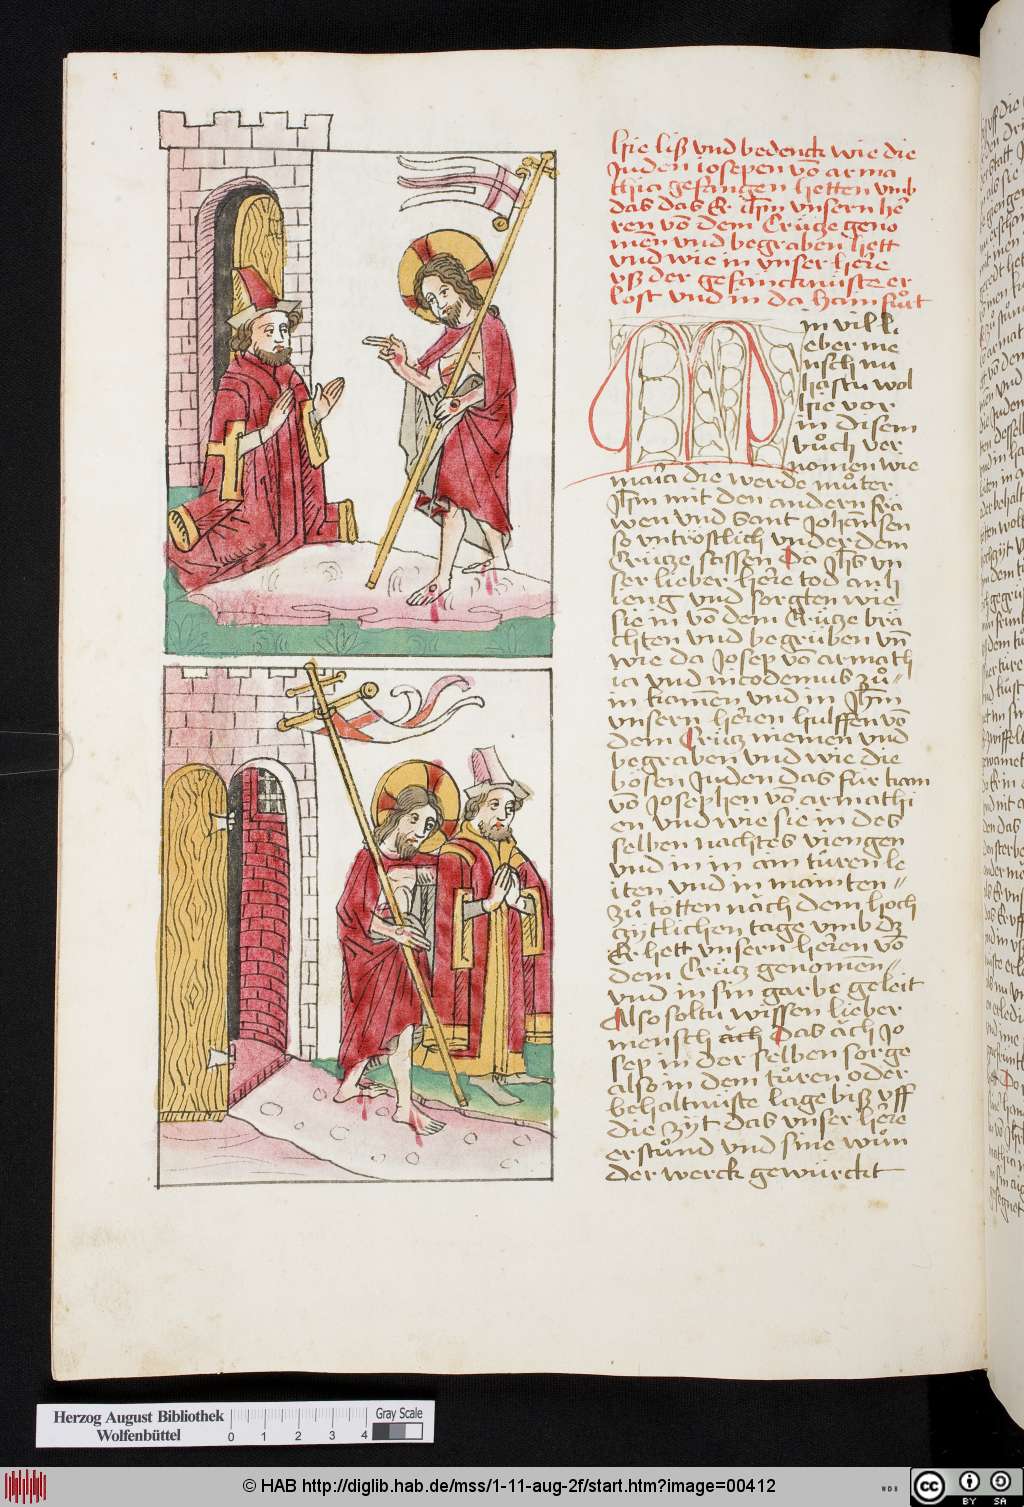 Hie liß vnd bedenck wie die
Juden iosepen võ arma
thia gefangen hetten vmb
das das Er ihm̃ vnsern her̃
ren võ dem Crütze geno
men vnd begraben hett
vnd wie in vnser here
vß der gefäncknüste er
lost vnd in da haim fuͦrt
M
in vil li
eber me
nsch nu
hastu wol
hie vor
in disem
buͦch ver
nomen wie
maria die werde muͦter
Jhm̃ mit den andern fra
wen vnd Sant Johansen
so vntröstlich vnder dem
Crütze sassen Do Jhs̃ vn
ser lieber here tod an
vnd sorgten wie
sie in võ dem Crütze brä
chten vnd begrüben vñ
wie da Josep võ armath
ia vnd nicodemus zuͦ
in kamen vnd in Jhm̃
vnsern heren hulffen võ
dem Crütz niemen vnd
begraben vnd wie die
bösen Juden das für kam
võ Josephen võ armathi
en vnd wie sie in des
selben nachtes viengen
vnd in in ain türen le
iten vnd in mainten
zuͦ tötten näch dem hoch
zytlichen tage vmb dz
Er hett vnsern heren võ
dem Crütz genomen
vnd in sin garbe geleit
Also soltu wissen lieber
mensch äch Das äch Jo
sep in der selben sorge
also in dem tuͦren oder
behaltnüste lage biß vff
die zyt das vnser here
erstuͦnd vnd sine wun
der werck gewürckt
Herzog August Bibliothek
Wolfenbüttel
0 1 2 3 4
Gray Scale
© HAB http://diglib.hab.de/mss/1-11-aug-2f/start.htm?image=00412
WDB
cc BY SA